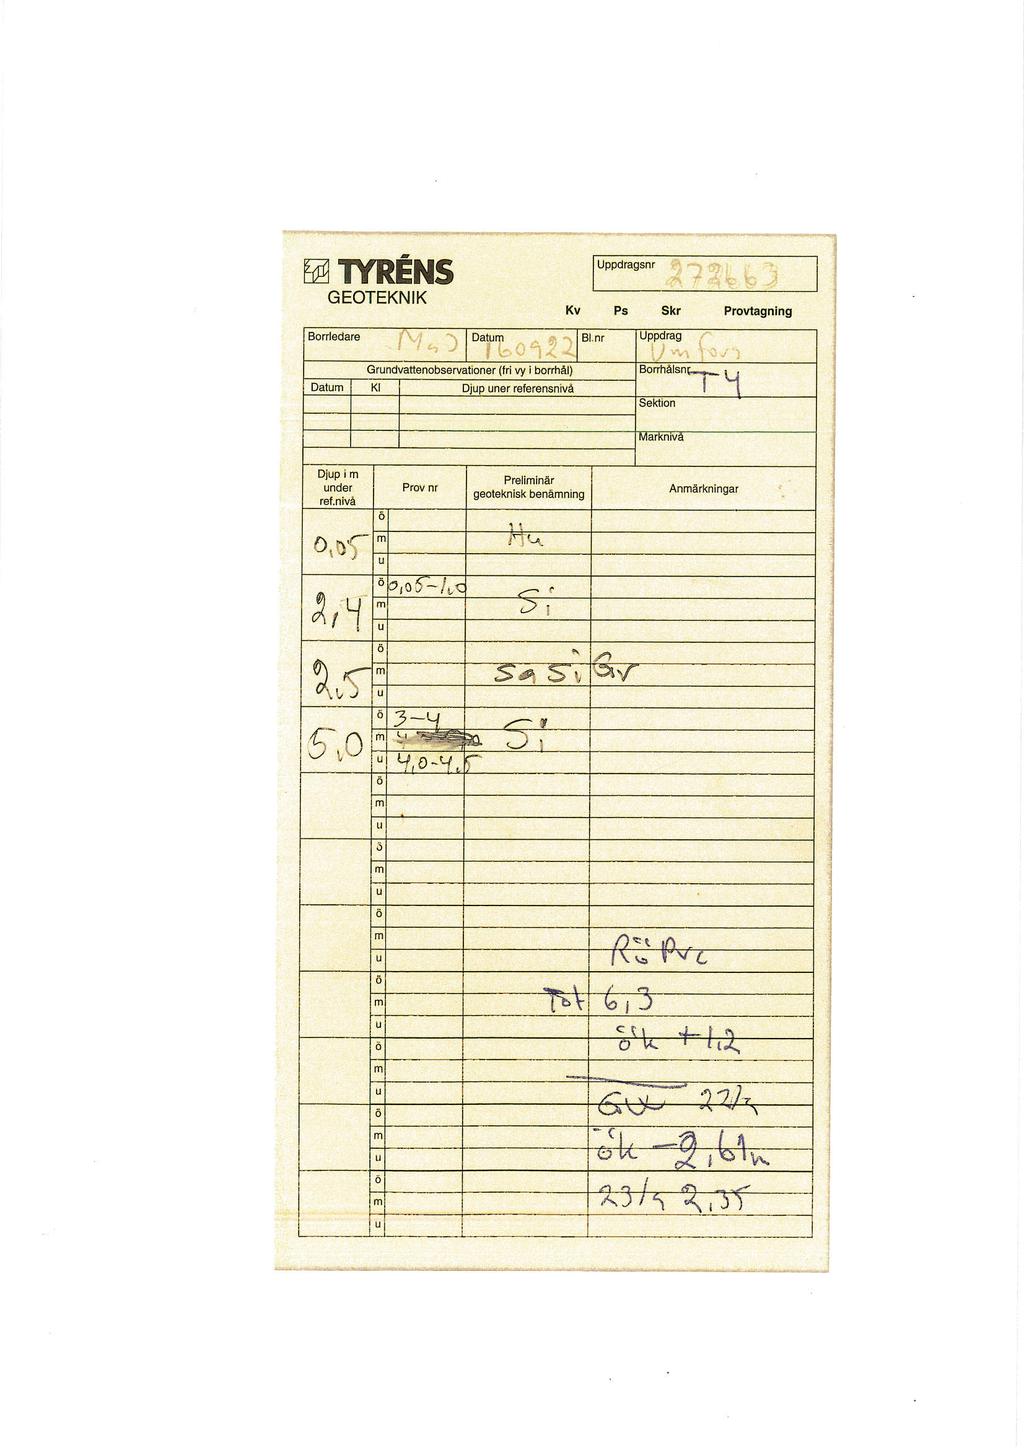 TYRÉNS
GEOTEKNIK
Uppdragsnr 272663
Kv Ps Skr Provtagning
Borrledare
Datum 160922
Bl.nr
Uppdrag Umfors
Grundvattenobservationer (fri vy i borrhål)
Borrhålsnr T4
Datum Kl Djup uner referensnivå
Sektion
Marknivå
Djup i m under ref.nivå
Prov nr
Preliminär geoteknisk benämning
Anmärkningar
ö
0,05 m Hu
u
ö 0,05-1,0
2,4 m Si
u
ö
2,5 m sa Si Gr
u
ö 3-4
5,0 m Si
u 4,0-4,5
ö
m
u
ö
m
u
ö
m
u Rö Pvc
ö
m Tot 6,3
u
ö ök +1,2
m
u
ö GW 22/9
m
u ök -2,61m
ö
m 23/9 2,35
u